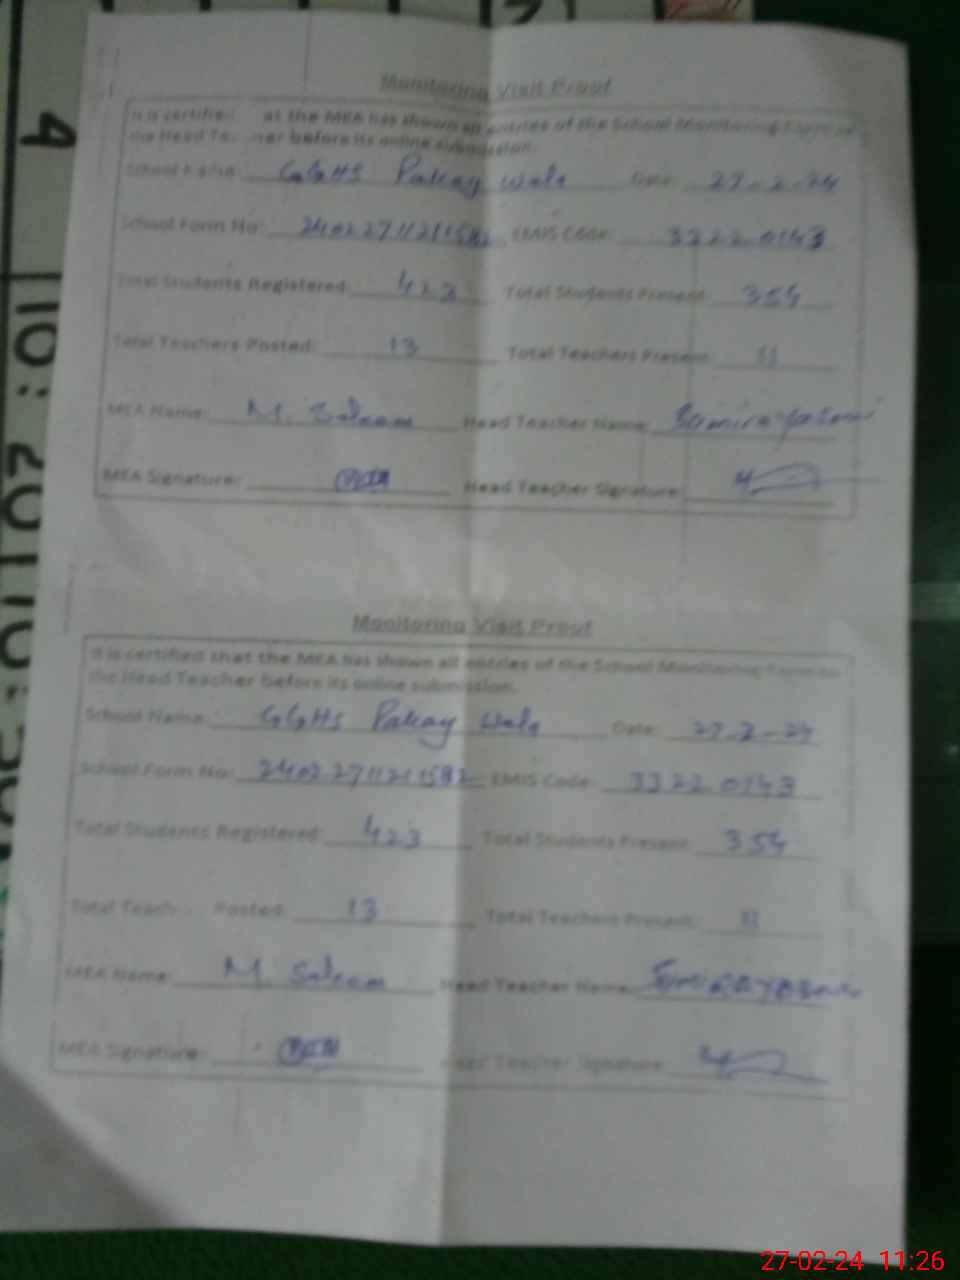 Monitoring Visit Proof
It is certified at the MEA has shown all entries of the School Monitoring Form to
the Head Te her before its online submission.
School Name: GGHS Pakay Wala Date: 27-2-24
School Form No: 2402271121582 EMIS Code: 33220143
Total Students Registered: 423 Total Students Present: 354
Total Teachers Posted: 13 Total Teachers Present: 11
MEA Name: M. Saleem Head Teacher Name:
MEA Signature: Head Teacher Signature:
Monitoring Visit Proof
It is certified that the MEA has shown all entries of the School Monitoring Form to
the Head Teacher before its online submission.
School Name: GGHS Pakay Wala Date: 27-2-24
School Form No: EMIS Code: 33220143
Total Students Registered: 423 Total Students Present: 354
Total Teach Posted: 13 Total Teachers Present: 11
MEA Name: M. Saleem Head Teacher Name:
MEA Signature: Head Teacher Signature:
4
10:20
27-02-24 11:26